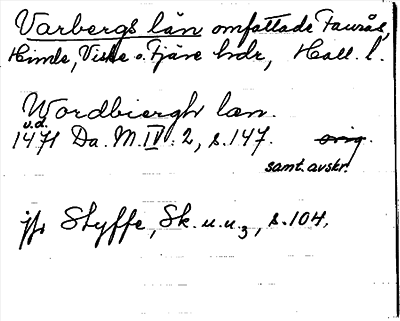 Varbergs län omfattade Faurås,
Himle, Viske o. Fjäre hdr, Hall. l.
Wordbiergh læn.
u.d.
1471 Da. M. IV: 2, s. 147. orig.
samt. avskr.
jfr Styffe, Sk. u. u. 3, s. 104.